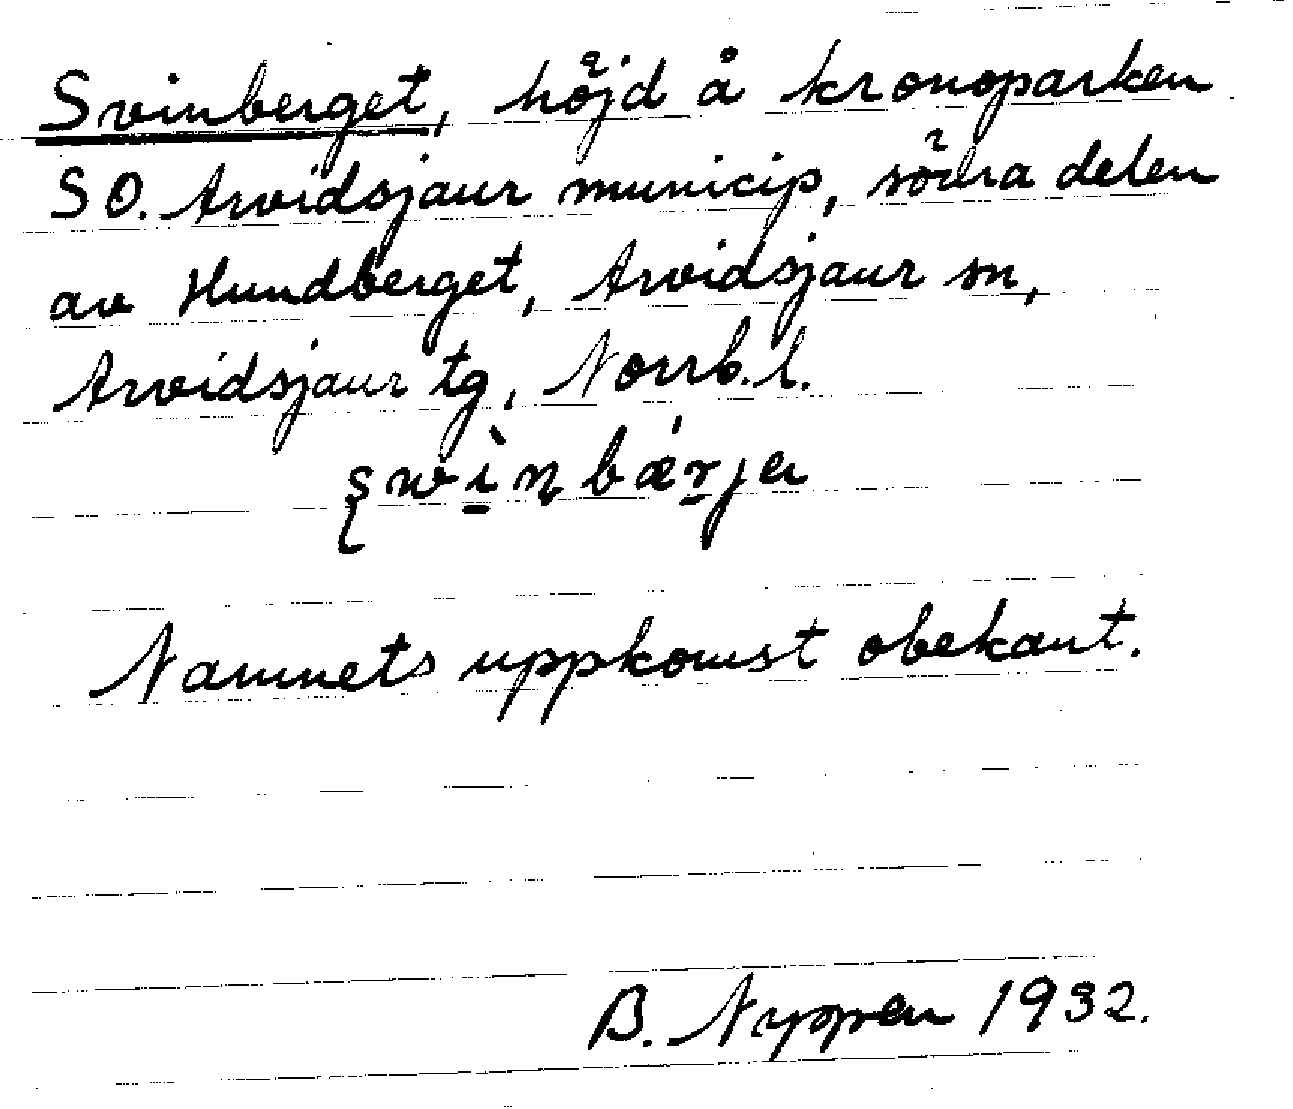 Svinberget, höjd å kronoparken
SO. Arvidsjaur municip, södra delen
av Hundberget, Arvidsjaur sn,
Arvidsjaur tg, Norrb. l.
Namnets uppkomst obekant.
B. Nyppen 1932.